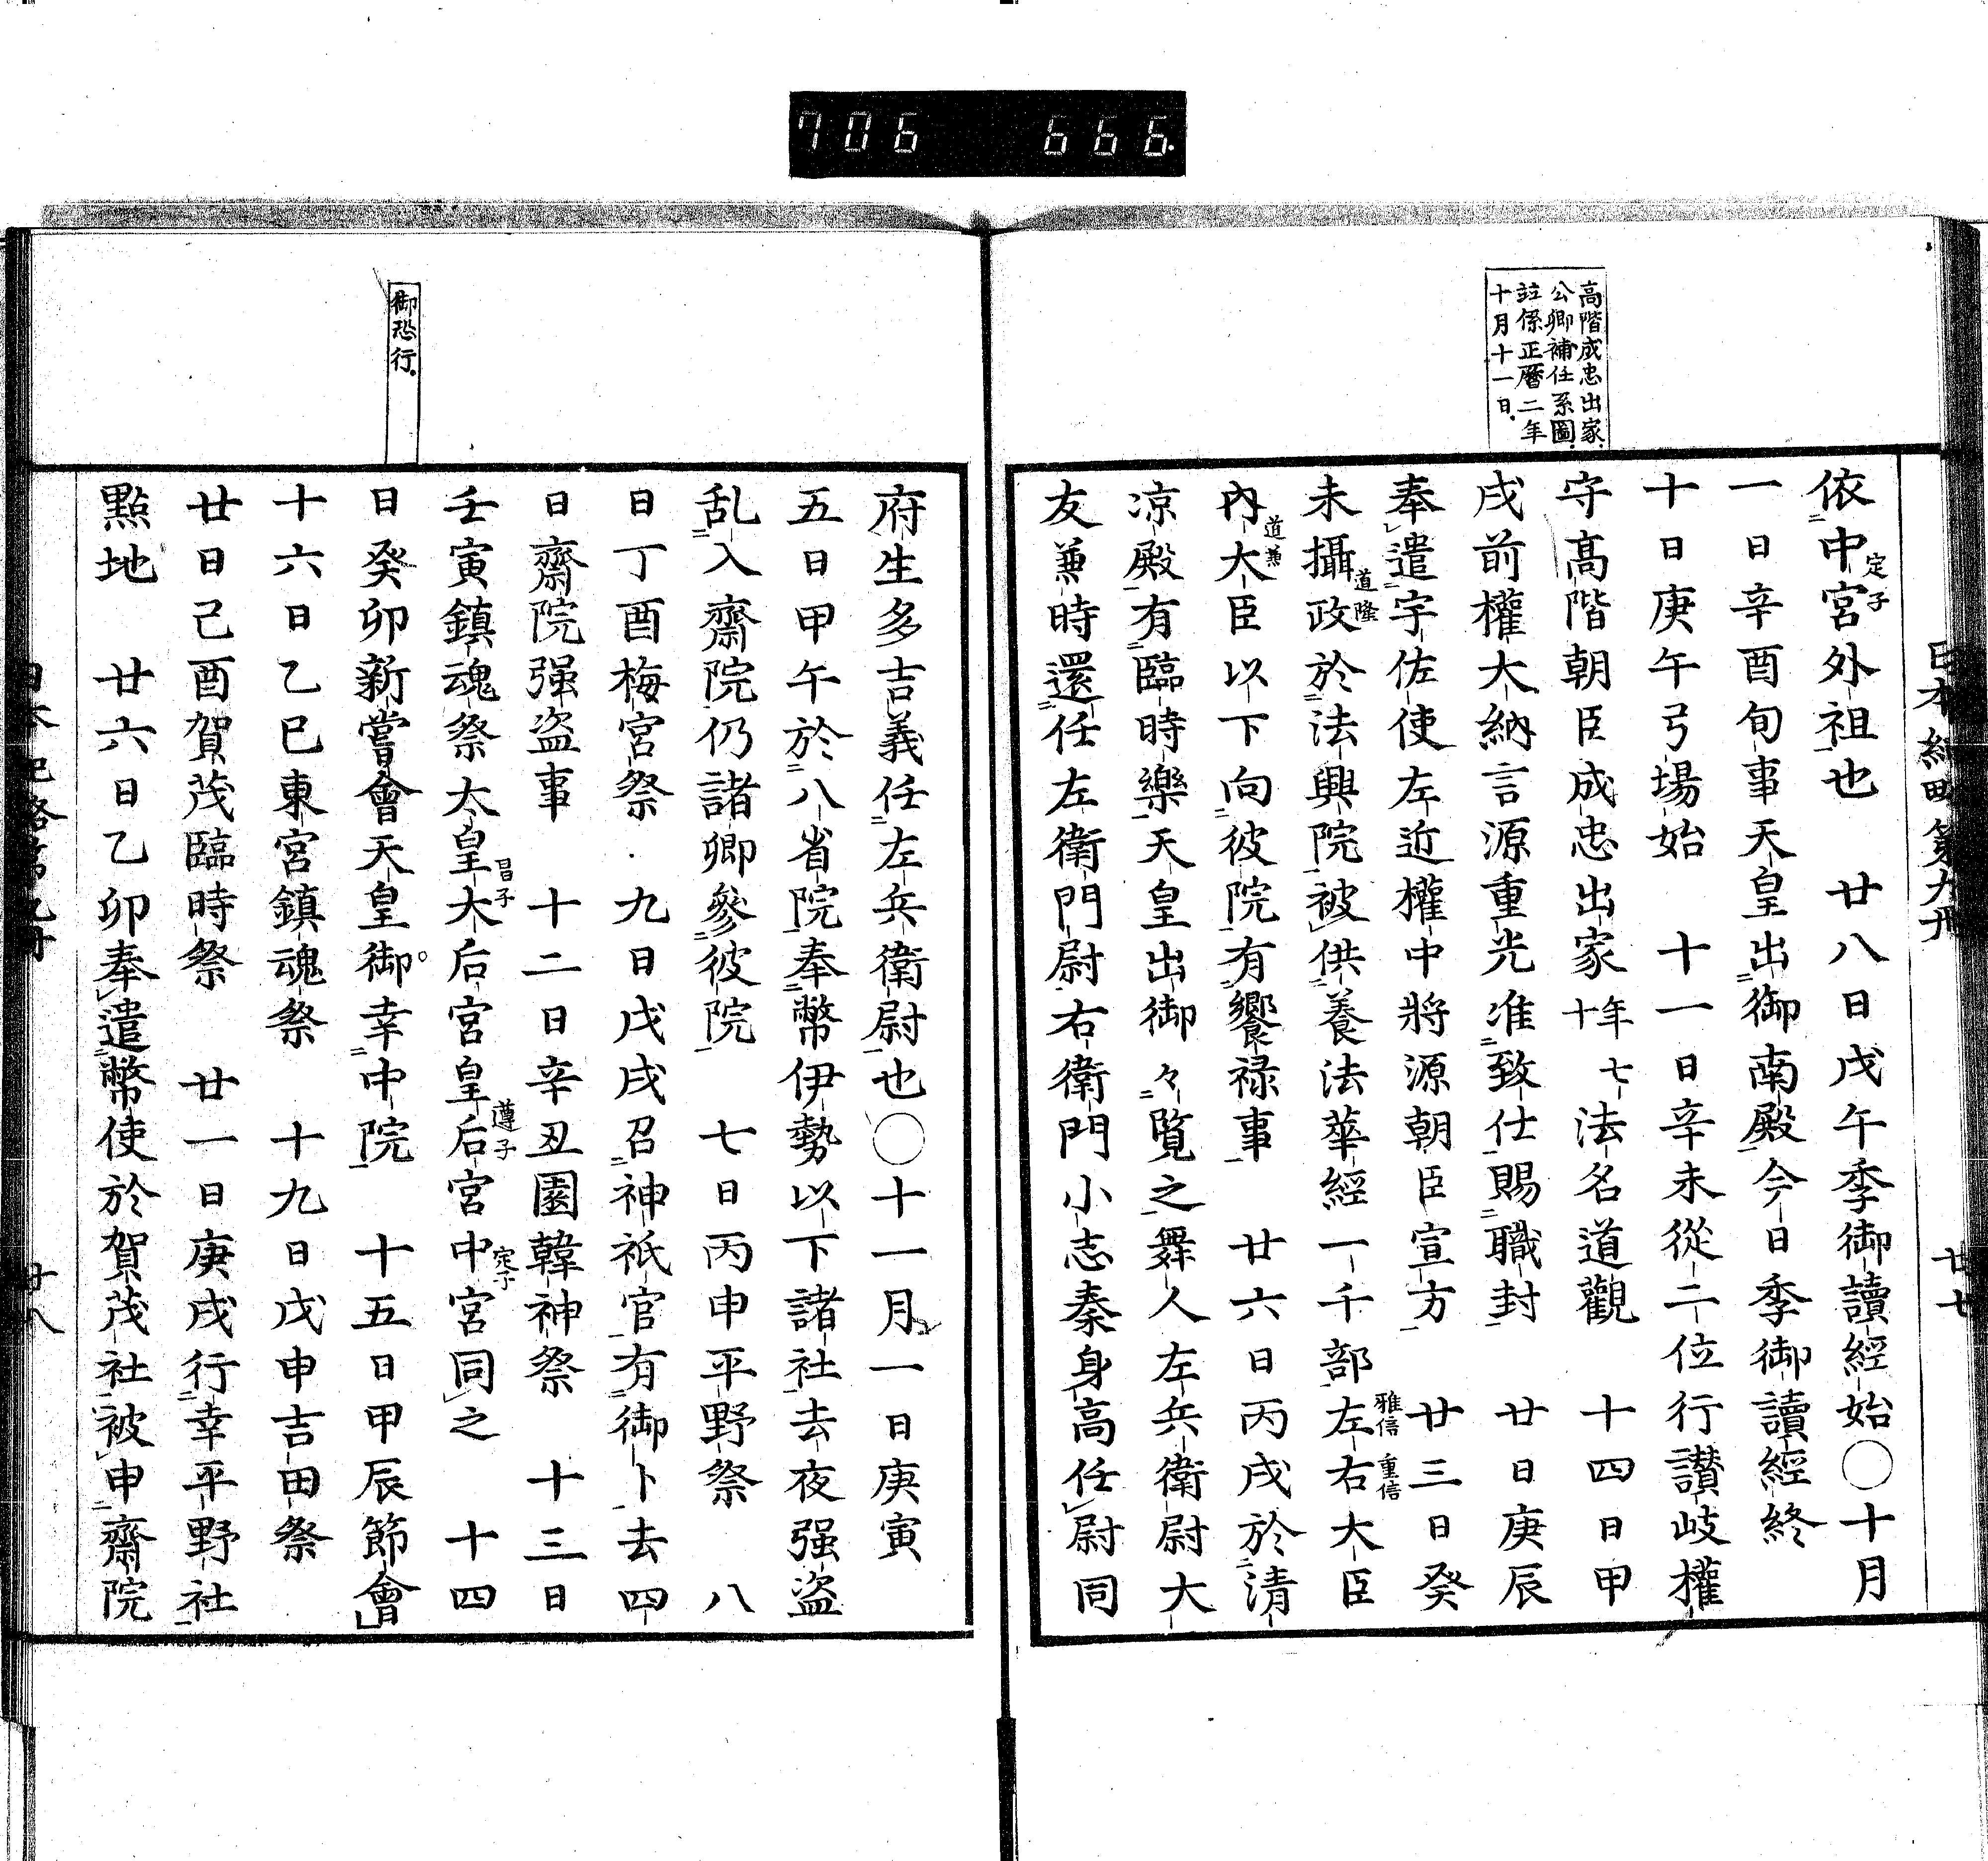 706 666
高階成忠出家
公卿補任系圖
竝係正曆二年
十月十一日
日本紀略第九冊 廿七
依中宮外祖也 廿八日戊午季御讀經始〇十月
定子
一日辛酉旬事天皇出御南殿今日季御讀經終
十日庚午弓場始 十一日辛未從二位行讃岐權
守高階朝臣成忠出家年七十法名道觀 十四日甲
戌前權大納言源重光准致仕賜職封 廿日庚辰
奉遣宇佐使左近權中將源朝臣宣方 廿三日癸
未攝政於法興院被供養法華經一千部左右大臣
道隆 雅信 重信
內大臣以下向彼院有饗禄事 廿六日丙戌於清
道兼
凉殿有臨時樂天皇出御々覽之舞人左兵衛尉大
友兼時還任左衛門尉右衛門小志秦身高任尉同
御恐行
府生多吉義任左兵衛尉也〇十一月一日庚寅
五日甲午於八省院奉幣伊勢以下諸社去夜强盜
乱入齋院仍諸卿參彼院 七日丙申平野祭 八
日丁酉梅宮祭 九日戊戌召神祇官有御卜去四
日齋院强盜事 十二日辛丑園韓神祭 十三日
壬寅鎮魂祭太皇大后宮皇后宮中宮同之 十四
昌子 遵子 定子
日癸卯新嘗會天皇御幸中院 十五日甲辰節會
十六日乙巳東宮鎮魂祭 十九日戊申吉田祭
廿日己酉賀茂臨時祭 廿一日庚戌行幸平野社
點地 廿六日乙卯奉遣幣使於賀茂社被申齋院
日本紀略第九冊 廿八